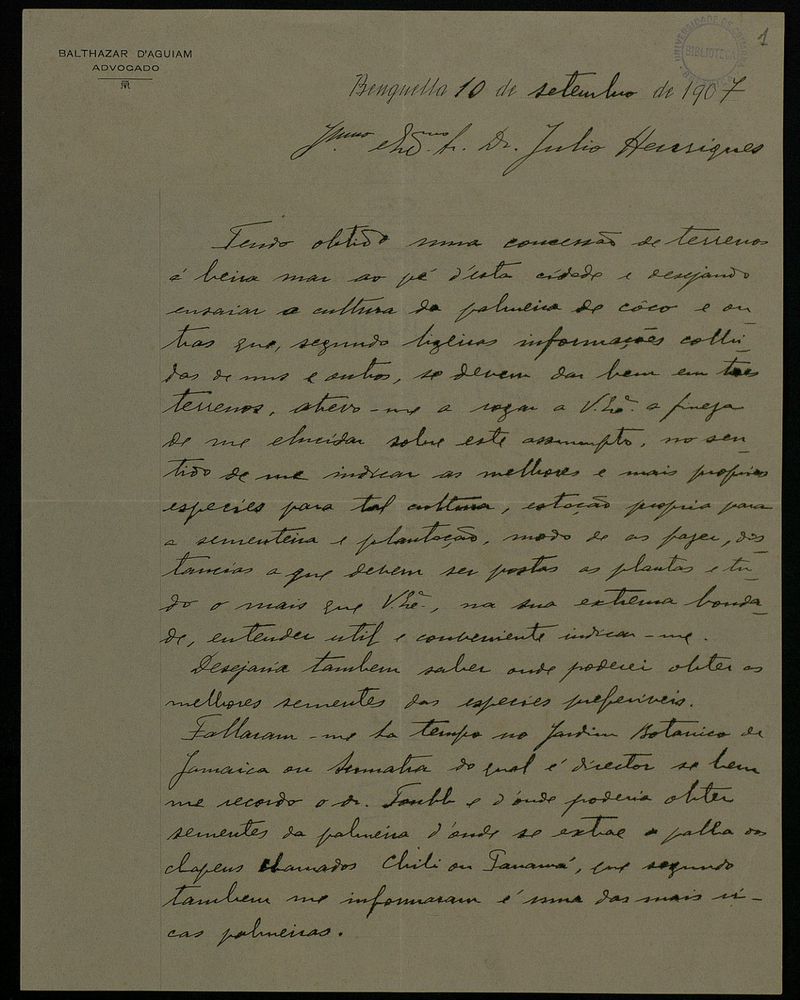 BALTHAZAR D'AGUIAM
ADVOGADO
UNIVERSIDADE DE COIMBRA
BIBLIOTECA
1
Benguella 10 de setembro de 1907
Illmo e Exmo Sr. Dr. Julio Henriques
Tendo obtido uma concessão de terrenos
á beira mar ao pé d'esta cidade e desejando
ensaiar a cultura da palmeira de côco e ou-
tras que, segundo ligeiras informações colhi-
das de uns e outros, se devem dar bem em taes
terrenos, atrevo-me a rogar a V. Exª. a fineza
de me elucidar sobre este assumpto, no sen-
tido de me indicar as melhores e mais proprias
especies para tal cultura, estação propria para
a sementeira e plantação, modo de as fazer, dis-
tancias a que devem ser postas as plantas e tu-
do o mais que V. Exª., na sua extrema bonda-
de, entender util e conveniente indicar-me.
Desejaria tambem saber onde poderei obter as
melhores sementes das especies preferiveis.
Fallaram-me ha tempo no Jardim Botanico de
Jamaica ou Summatra do qual é director se bem
me recordo o dr. e d'onde poderia obter
sementes da palmeira d'onde se extrae a palha dos
chapeus chamados Chili ou Panamá, que segundo
tambem me informaram é uma das mais ri-
cas palmeiras.